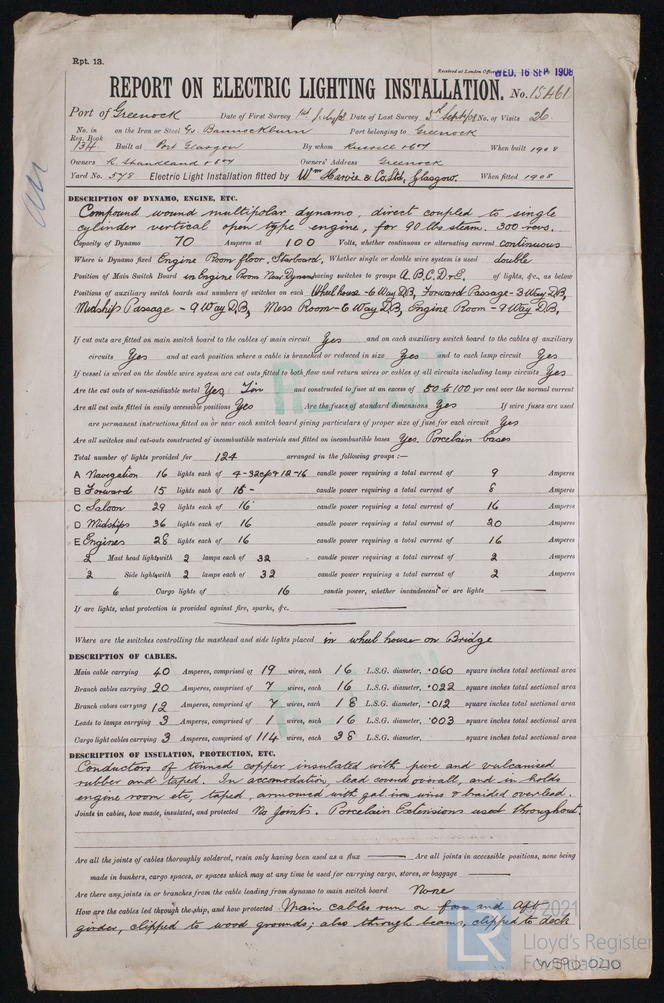 Rpt. 13.
Received at London Office WED. 16 SEP 1908
REPORT ON ELECTRIC LIGHTING INSTALLATION. No. 15461
Port of Greenock Date of First Survey 1st Date of Last Survey 5th Sept/08 No. of Visits
No. in Reg. Book 134 on the Iron or Steel Ss. Bannockburn Port belonging to Greenock
Built at Port Glasgow By whom Russell & Co When built 1908
Owners R. Shankland & Co Owners' Address Greenock
Yard No. 578 Electric Light Installation fitted by Wm Harvie & Co. Ltd, Glasgow. When fitted 1908
DESCRIPTION OF DYNAMO, ENGINE, ETC.
Compound wound multipolar dynamo, direct coupled to single
cylinder vertical open type engine, for 90 lbs steam. 300 revs.
Capacity of Dynamo 70 Amperes at 100 Volts, whether continuous or alternating current continuous
Where is Dynamo fixed Engine Room floor, Starboard, Whether single or double wire system is used double
Position of Main Switch Board in Engine Room Near Dynamo having switches to groups A. B. C. D & E. of lights, &c., as below
Positions of auxiliary switch boards and numbers of switches on each Wheel house - 6 Way D.B, Forward Passage - 3 Way D.B,
Midship Passage - 9 Way D.B, Mess Room - 6 Way D.B, Engine Room - 9 Way D.B,
If cut outs are fitted on main switch board to the cables of main circuit Yes and on each auxiliary switch board to the cables of auxiliary
circuits Yes and at each position where a cable is branched or reduced in size Yes and to each lamp circuit Yes
If vessel is wired on the double wire system are cut outs fitted to both flow and return wires or cables of all circuits including lamp circuits Yes
Are the cut outs of non-oxidizable metal Yes Tin and constructed to fuse at an excess of 50 to 100 per cent over the normal current
Are all cut outs fitted in easily accessible positions Yes Are the fuses of standard dimensions Yes If wire fuses are used
are permanent instructions fitted on or near each switch board giving particulars of proper size of fuse for each circuit Yes
Are all switches and cut-outs constructed of incombustible materials and fitted on incombustible bases Yes. Porcelain bases
Total number of lights provided for 124 arranged in the following groups :—
A Navigation 16 lights each of 4-32cp & 12-16 candle power requiring a total current of 9 Amperes
B Forward 15 lights each of 16 - candle power requiring a total current of 8 Amperes
C Saloon 29 lights each of 16 candle power requiring a total current of 16 Amperes
D Midships 36 lights each of 16 candle power requiring a total current of 20 Amperes
E Engines 28 lights each of 16 candle power requiring a total current of 16 Amperes
2 Mast head light with 2 lamps each of 32 candle power requiring a total current of 2 Amperes
2 Side light with 2 lamps each of 32 candle power requiring a total current of 2 Amperes
6 Cargo lights of 16 candle power, whether incandescent or arc lights
If arc lights, what protection is provided against fire, sparks, &c.
Where are the switches controlling the masthead and side lights placed in wheel house on Bridge
DESCRIPTION OF CABLES.
Main cable carrying 40 Amperes, comprised of 19 wires, each 16 L.S.G. diameter, .060 square inches total sectional area
Branch cables carrying 20 Amperes, comprised of 7 wires, each 16 L.S.G. diameter, .022 square inches total sectional area
Branch cables carrying 12 Amperes, comprised of 7 wires, each 18 L.S.G. diameter, .012 square inches total sectional area
Leads to lamps carrying 3 Amperes, comprised of 1 wires, each 16 L.S.G. diameter, .003 square inches total sectional area
Cargo light cables carrying 3 Amperes, comprised of 114 wires, each 38 L.S.G. diameter, square inches total sectional area
DESCRIPTION OF INSULATION, PROTECTION, ETC.
Conductors of tinned copper insulated with pure and vulcanised
rubber and taped. In accomodation, lead covered overall, and in holds
engine room etc, taped, armoured with gal iron wires & braided overlead.
Joints in cables, how made, insulated, and protected No Joints. Porcelain Extensions used throughout.
Are all the joints of cables thoroughly soldered, resin only having been used as a flux Are all joints in accessible positions, none being
made in bunkers, cargo spaces, or spaces which may at any time be used for carrying cargo, stores, or baggage
Are there any joints in or branches from the cable leading from dynamo to main switch board None
How are the cables led through the ship, and how protected Main cables run on fore and aft
girder, clipped to wood grounds; also through beams, clipped to deck
© 2021
LR Lloyd's Register
Foundation
W590-0210